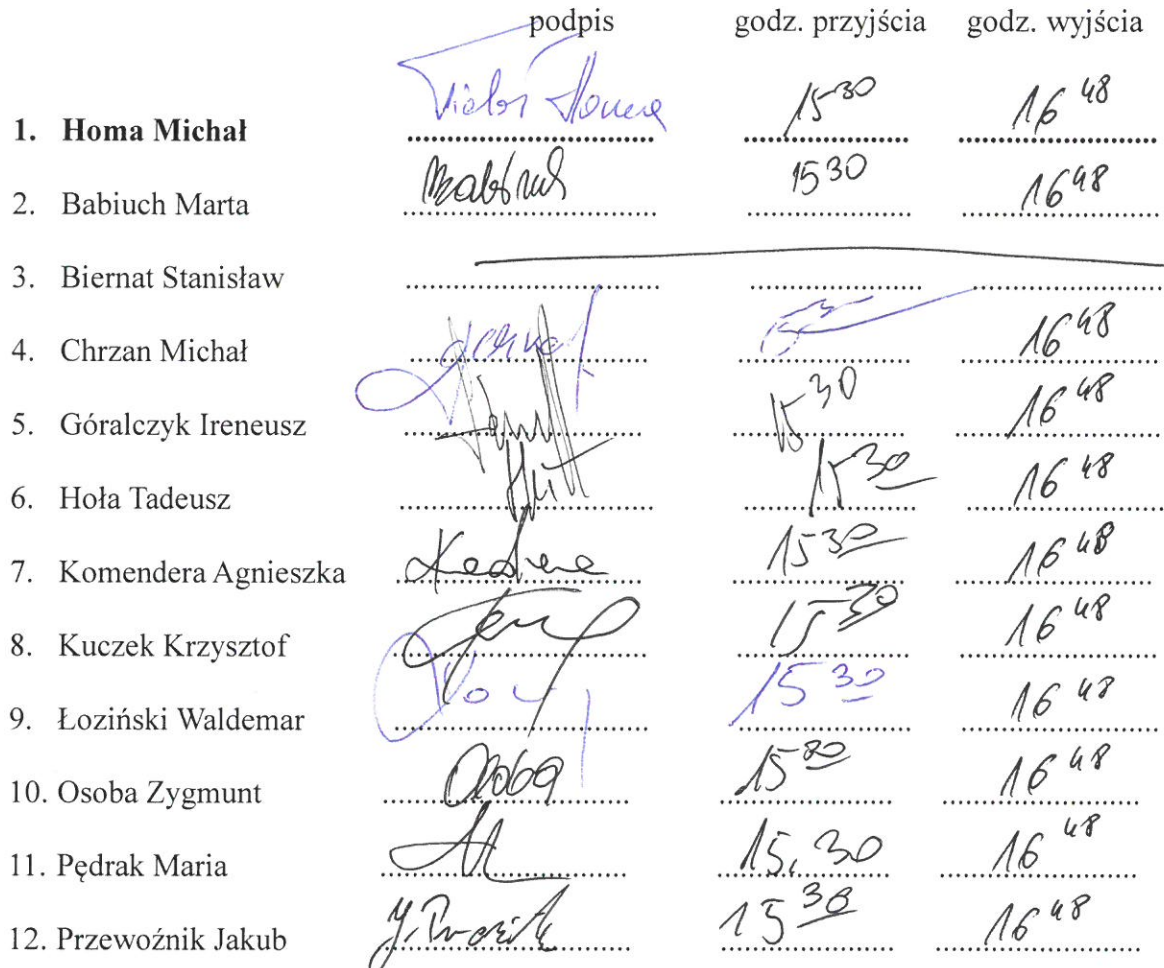 podpis godz. przyjścia godz. wyjścia
1. Homa Michał 15 30 16 48
2. Babiuch Marta 15 30 16 48
3. Biernat Stanisław
4. Chrzan Michał 16 48
5. Góralczyk Ireneusz 15 30 16 48
6. Hoła Tadeusz 15 30 16 48
7. Komendera Agnieszka 15 30 16 48
8. Kuczek Krzysztof 15 30 16 48
9. Łoziński Waldemar 15 30 16 48
10. Osoba Zygmunt Osoba 15 30 16 48
11. Pędrak Maria 15.30 16 48
12. Przewoźnik Jakub 15 30 16 48